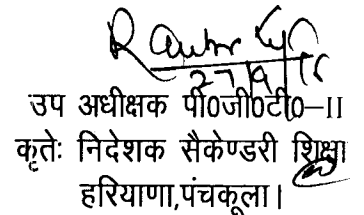 27/9/16
उप अधीक्षक पी0जी0टी0-II
कृतेः निदेशक सैकेण्डरी शिक्षा
हरियाणा,पंचकूला।